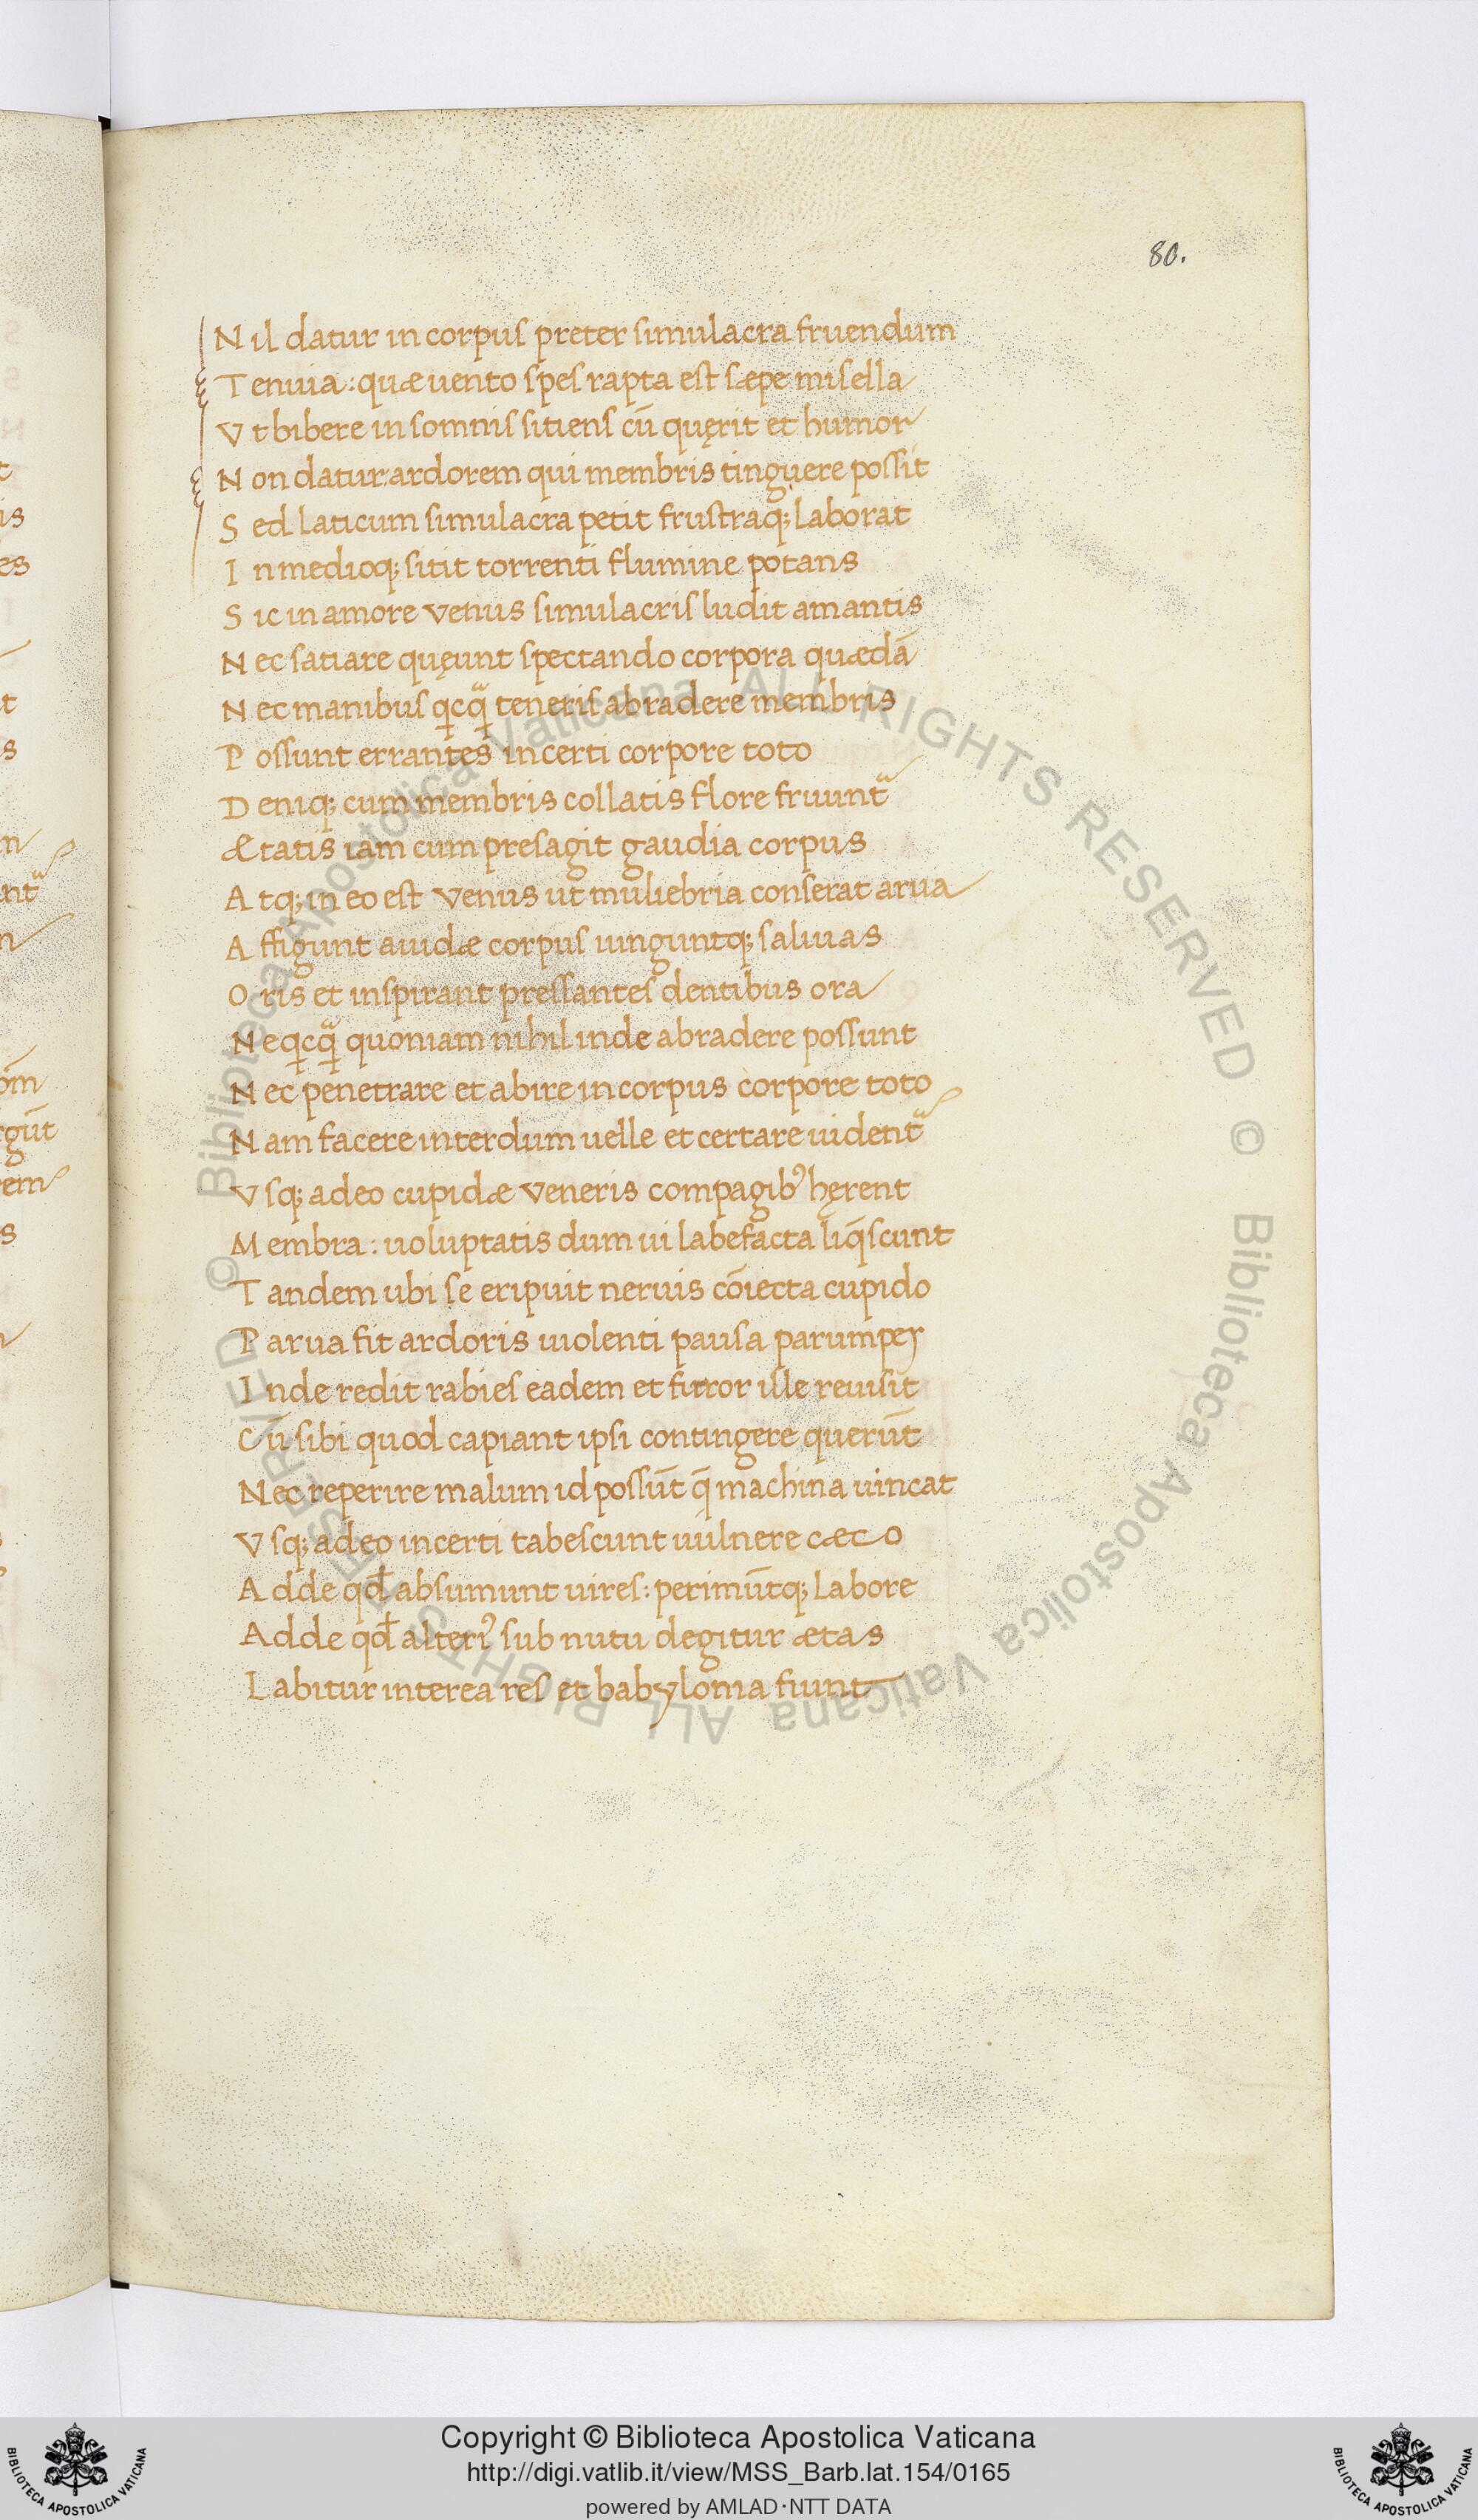 80.
Nil datur in corpus preter simulacra fruendum
Tenuia: quæ uento spes rapta est sæpe misella
Vt bibere in somnis sitiens cū quęrit et humor
Non datur: ardorem qui membris tinguere possit
Sed laticum simulacra petit frustraq; laborat
In medioq; sitit torrenti flumine potans
Sic in amore venus simulacris ludit amantis
Nec satiare quęunt spectando corpora quædā
Nec manibus qcq̃ teneris abradere membris
Possunt errantes incerti corpore toto
Deniq; cum membris collatis flore fruunt᷑
Ætatis iam cum presagit gaudia corpus
Atq; in eo est venus ut muliebria conserat arua
Affigunt auidæ corpus iunguntq; saliuas
Oris et inspirant pressantes dentibus ora
Neqcq̃ quoniam nihil inde abradere possunt
Nec penetrare et abire in corpus corpore toto
Nam facere interdum uelle et certare uident᷑
Vsq; adeo cupidæ veneris compagibꝰ hęrent
Membra: uoluptatis dum ui labefacta liq̄scunt
Tandem ubi se eripuit neruis cōiecta cupido
Parua fit ardoris uiolenti pausa parumper
Inde redit rabies eadem et furor ille reuisit
Cū sibi quod capiant ipsi contingere querūt
Nec reperire malum id possūt q̄ machina uincat
Vsq; adeo incerti tabescunt uulnere cæco
Adde qđ absumunt uires: perimūtq; labore
Adde qđ alteriꝰ sub nutu degitur ætas
Labitur interea res et babylonia fiunt
© Biblioteca Apostolica Vaticana ALL RIGHTS RESERVED © Biblioteca Apostolica Vaticana ALL RIGHTS RESERVED
Copyright © Biblioteca Apostolica Vaticana
http://digi.vatlib.it/view/MSS_Barb.lat.154/0165
powered by AMLAD·NTT DATA
BIBLIOTECA APOSTOLICA VATICANA
BIBLIOTECA APOSTOLICA VATICANA